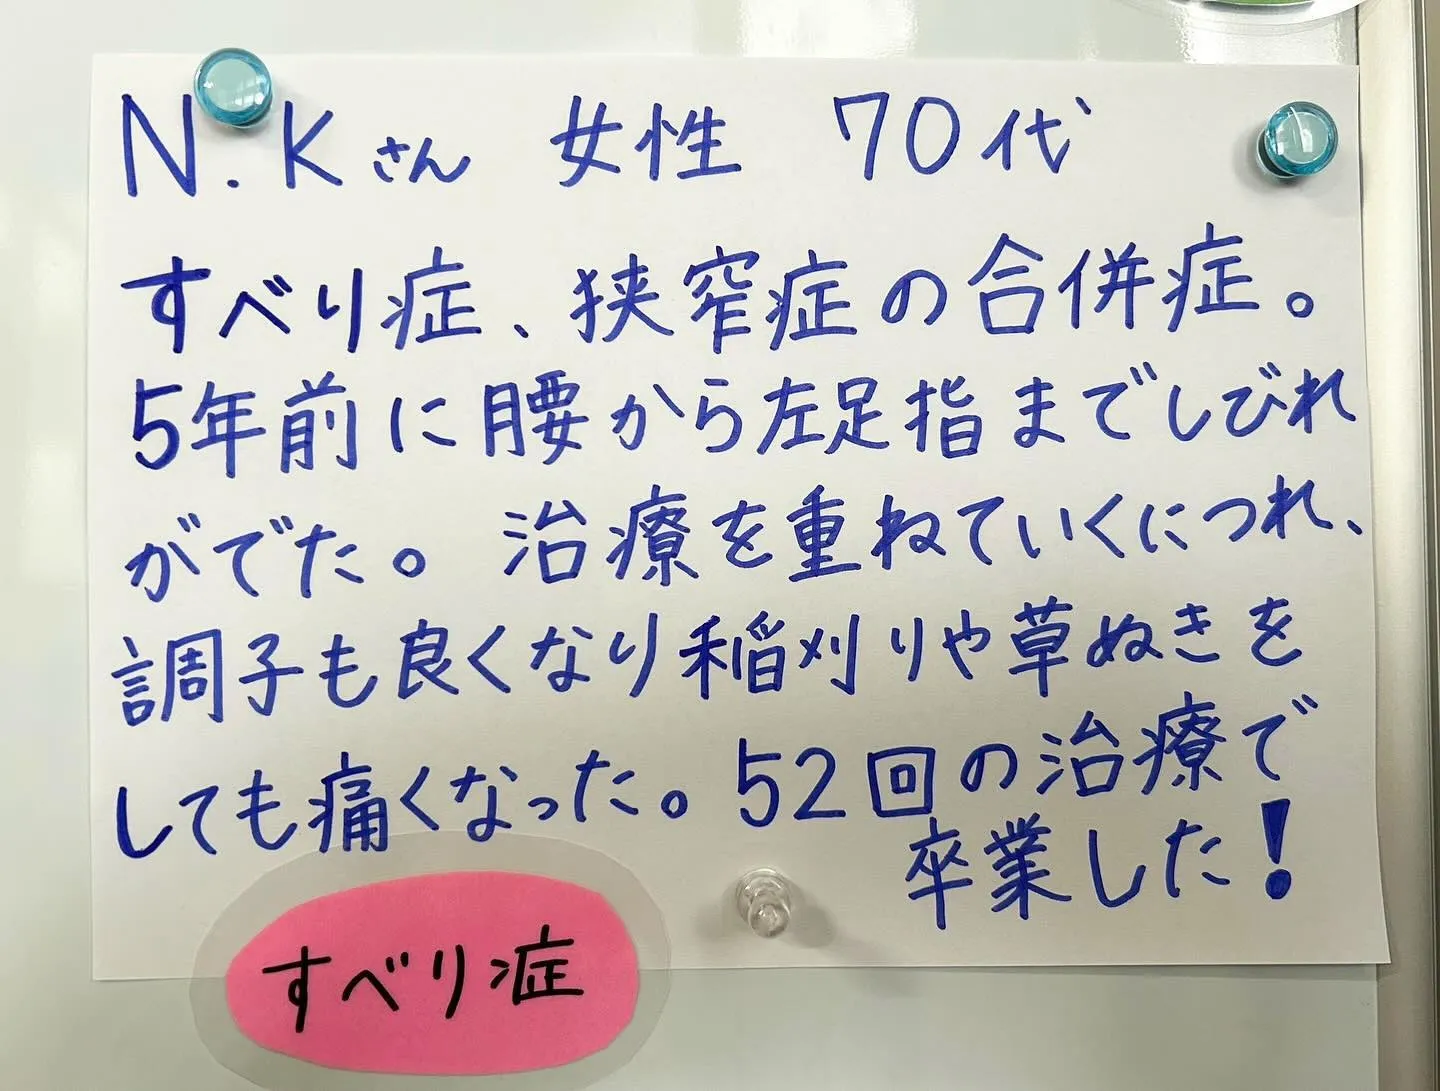 N.Kさん 女性 70代
すべり症、狭窄症の合併症。
5年前に腰から左足指までしびれ
がでた。治療を重ねていくにつれ、
調子も良くなり稲刈りや草ぬきを
しても痛くなった。52回の治療で
卒業した!
すべり症